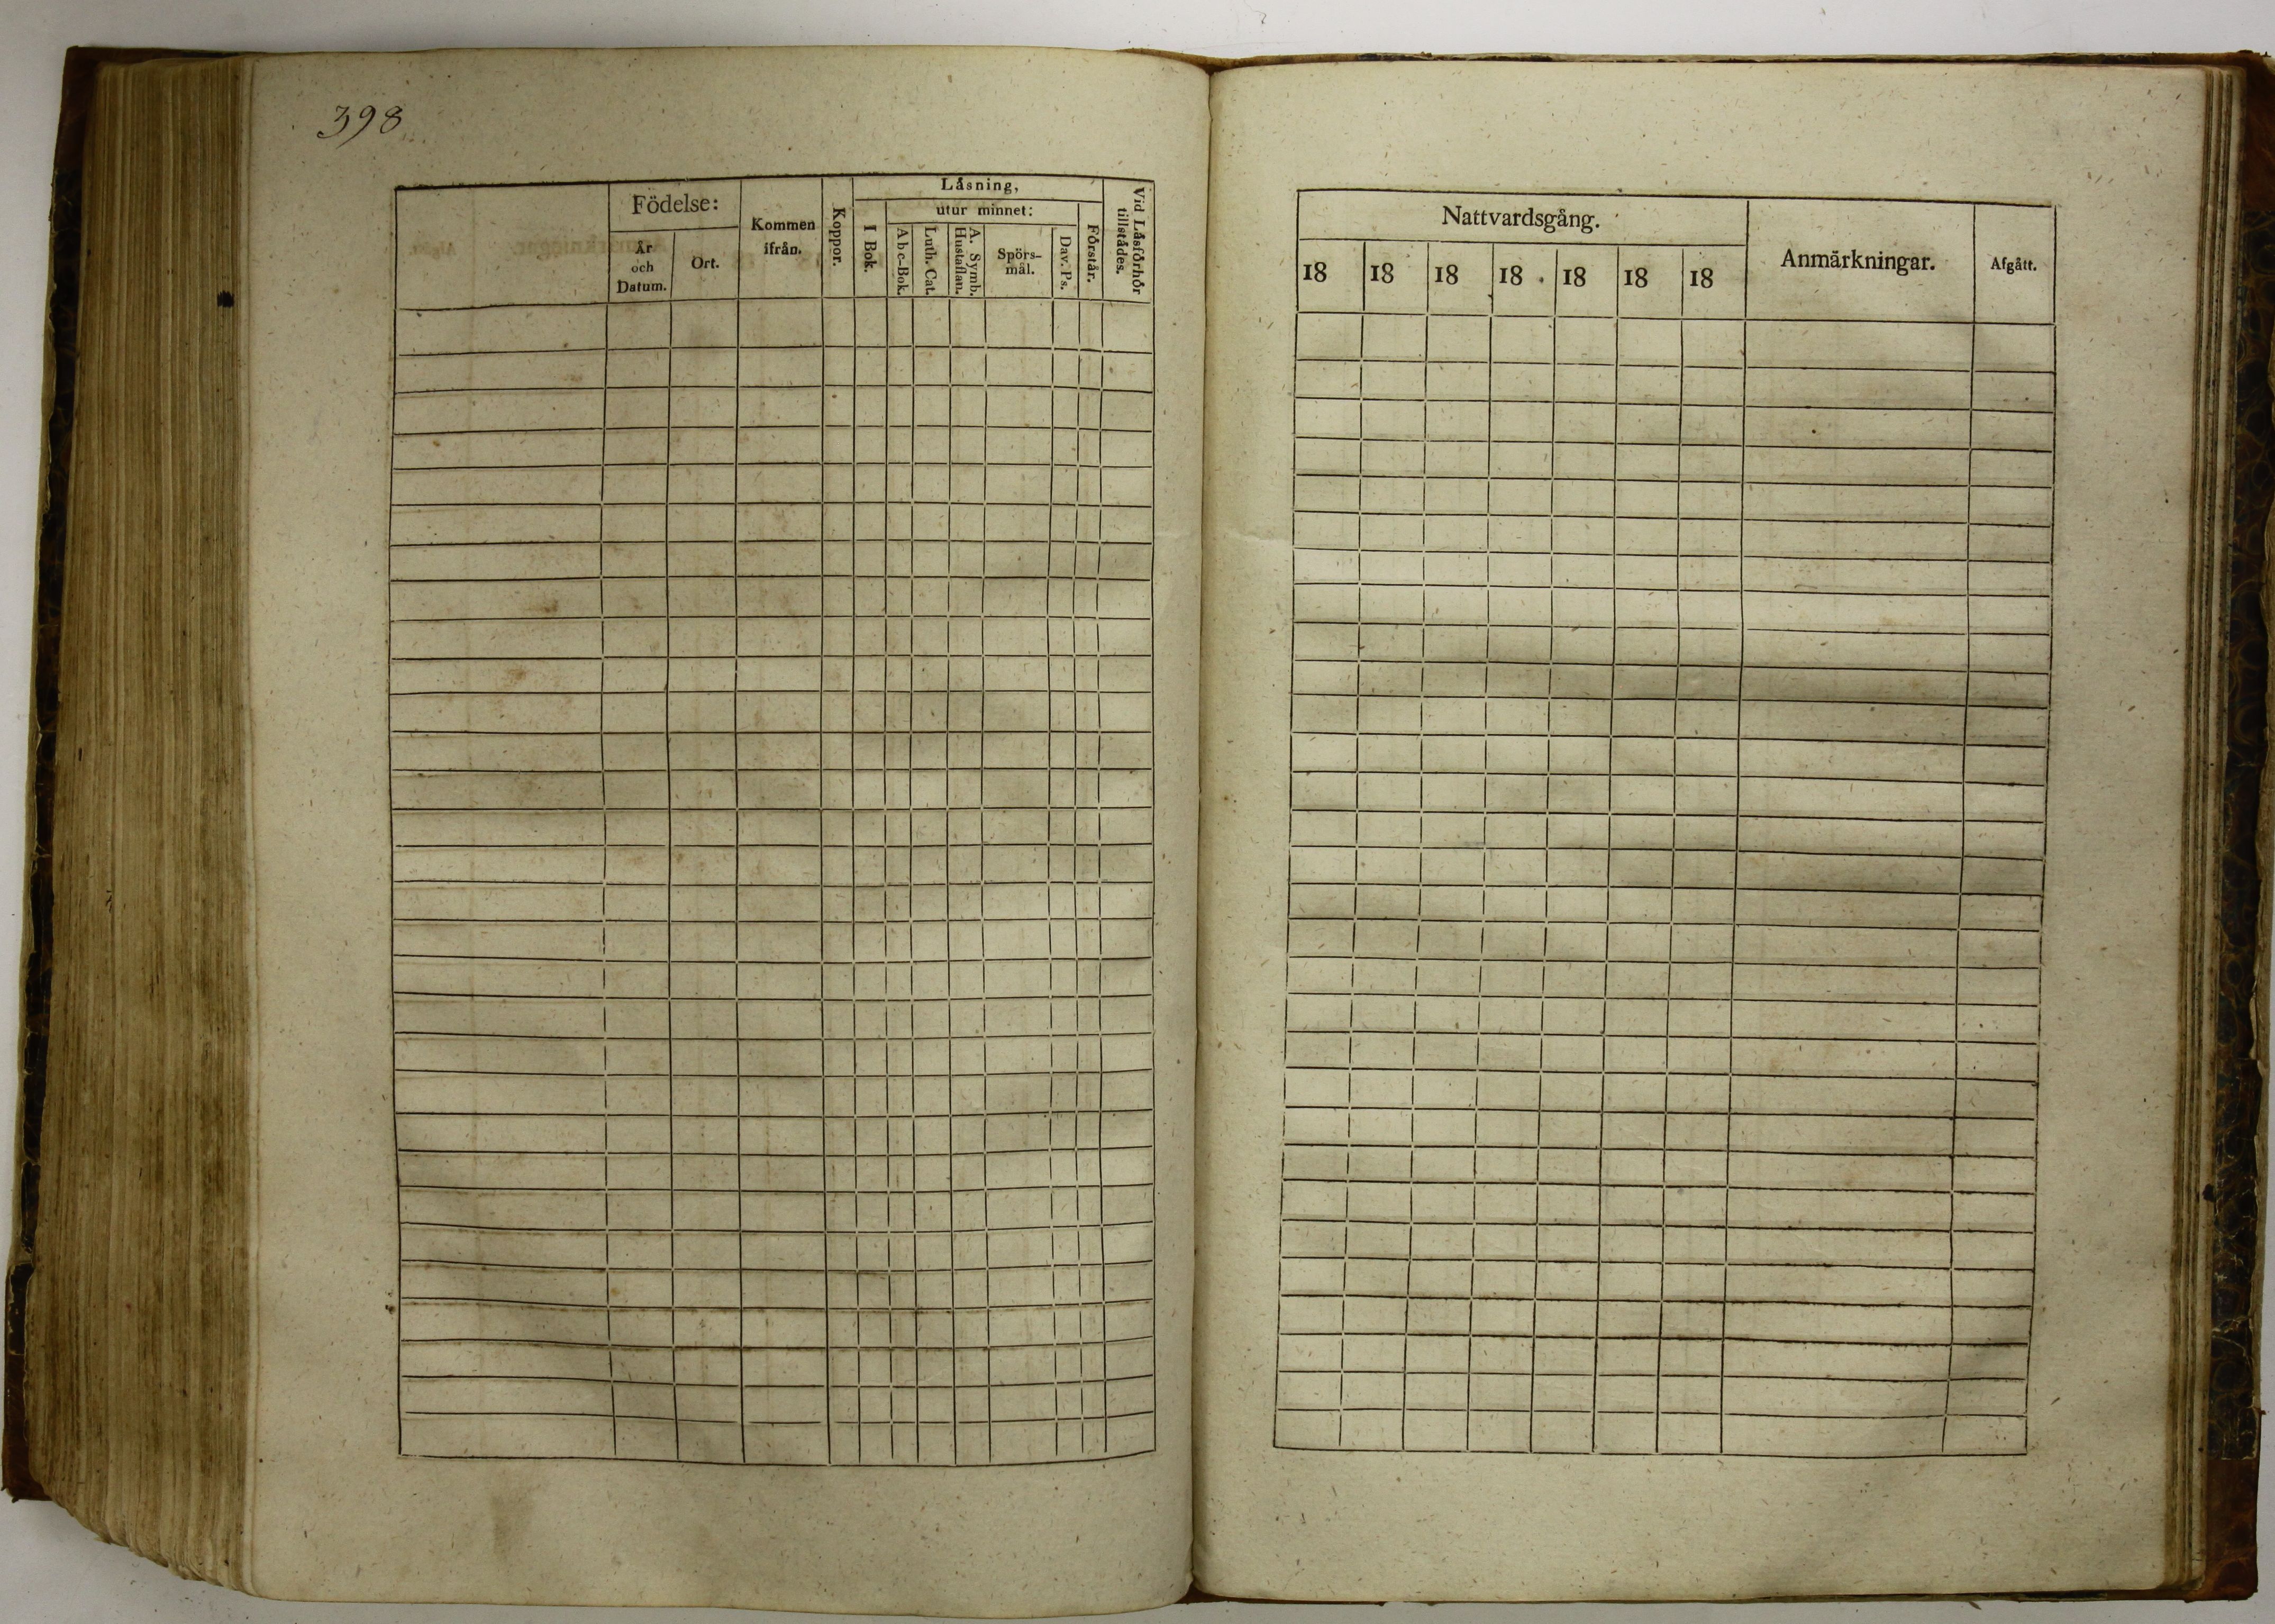 398
Låsning,
Födelse:
utur minnet:
Kommen
ifrån.
År
och
Datum.
Ort.
Koppor.
I Bok.
Abc-Bok.
Luth. Cat.
A. Symb.
Hustaflan.
Spörs-
mål.
Dav. Ps.
Förstår.
Vid Låsförhör
tillstådes.
Nattvardsgång.
18 18 18 18 18 18 18
Anmärkningar.
Afgått.